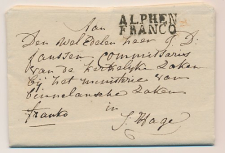 ALPHEN
FRANCO
Aan
Den WelEdelen heer J. D.
Janssen Commissaris
van de kerkelijke zaken
bij het ministerie van
binnelansche zaken
franko in
S'Hage